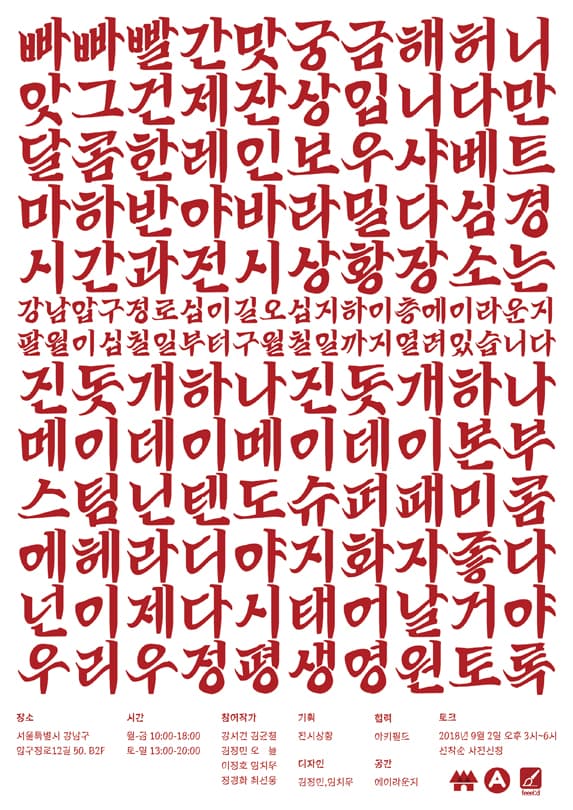 빠빠빨간맛궁금해허니
앗그건제잔상입니다만
달콤한레인보우샤베트
마하반야바라밀다심경
시간과전시상황장소는
강남압구정로십이길오십지하이층에이라운지
팔월이십칠일부터구월칠일까지열려있습니다
진돗개하나진돗개하나
메이데이메이데이본부
스텀닌텐도슈퍼패미콤
에헤라디야지화자좋다
넌이제다시태어날거야
우리우정평생영원토록
장소
서울특별시 강남구
압구정로12길 50. B2F
시간
월-금 10:00-18:00
토-일 13:00-20:00
참여작가
김정민 오 늘
이정호 임치우
정경화 최선웅
기획
전시상황
디자인
김정민,임치우
협력
아키필드
공간
에이라운지
토크
2018년 9월 2일 오후 3시~6시
선착순 사전신청
A